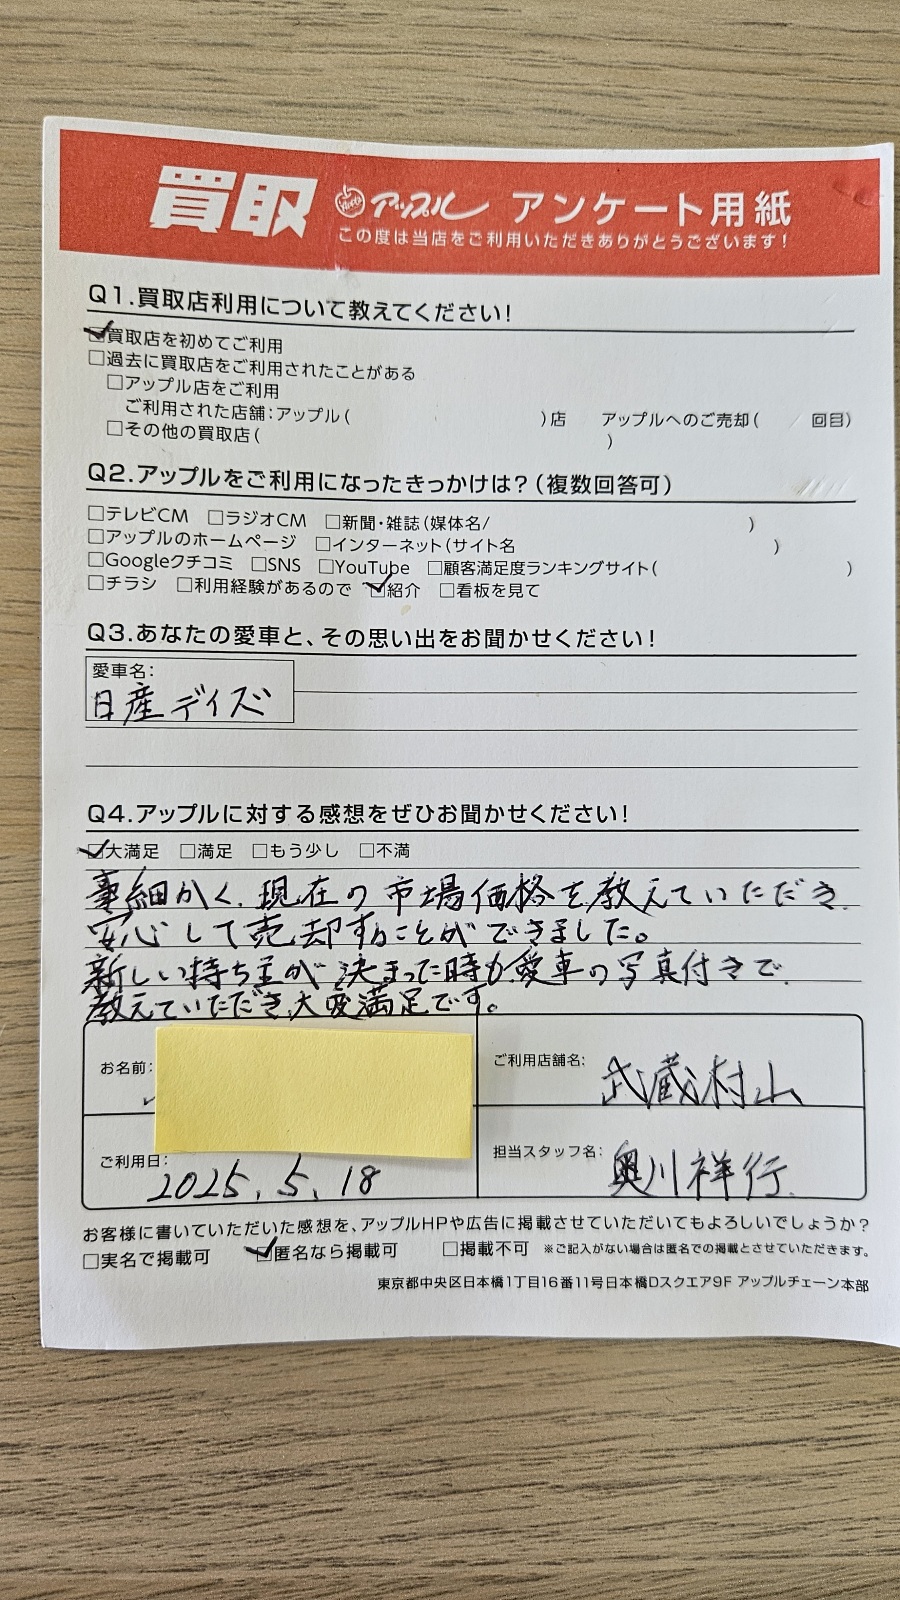 買取 アップル アンケート用紙
この度は当店をご利用いただきありがとうございます！
Q1.買取店利用について教えてください！
☑買取店を初めてご利用
□過去に買取店をご利用されたことがある
□アップル店をご利用
ご利用された店舗：アップル（ ）店 アップルへのご売却（ 回目）
□その他の買取店（ ）
Q2.アップルをご利用になったきっかけは？（複数回答可）
□テレビCM □ラジオCM □新聞・雑誌（媒体名/ ）
□アップルのホームページ □インターネット（サイト名 ）
□Googleクチコミ □SNS □YouTube □顧客満足度ランキングサイト（ ）
□チラシ □利用経験があるので ☑紹介 □看板を見て
Q3.あなたの愛車と、その思い出をお聞かせください！
愛車名：
日産 デイズ
Q4.アップルに対する感想をぜひお聞かせください！
☑大満足 □満足 □もう少し □不満
事細かく、現在の市場価格を教えていただき、
安心して売却することができました。
新しい持ち主が決まった時も、愛車の写真付きで
教えていただき、大変満足です。
お名前：
ご利用店舗名：
武蔵村山
ご利用日：
2025.5.18
担当スタッフ名：
奥川祥行
お客様に書いていただいた感想を、アップルHPや広告に掲載させていただいてもよろしいでしょうか？
□実名で掲載可 ☑匿名なら掲載可 □掲載不可 ※ご記入がない場合は匿名での掲載とさせていただきます。
東京都中央区日本橋1丁目16番11号日本橋Dスクエア9F アップルチェーン本部